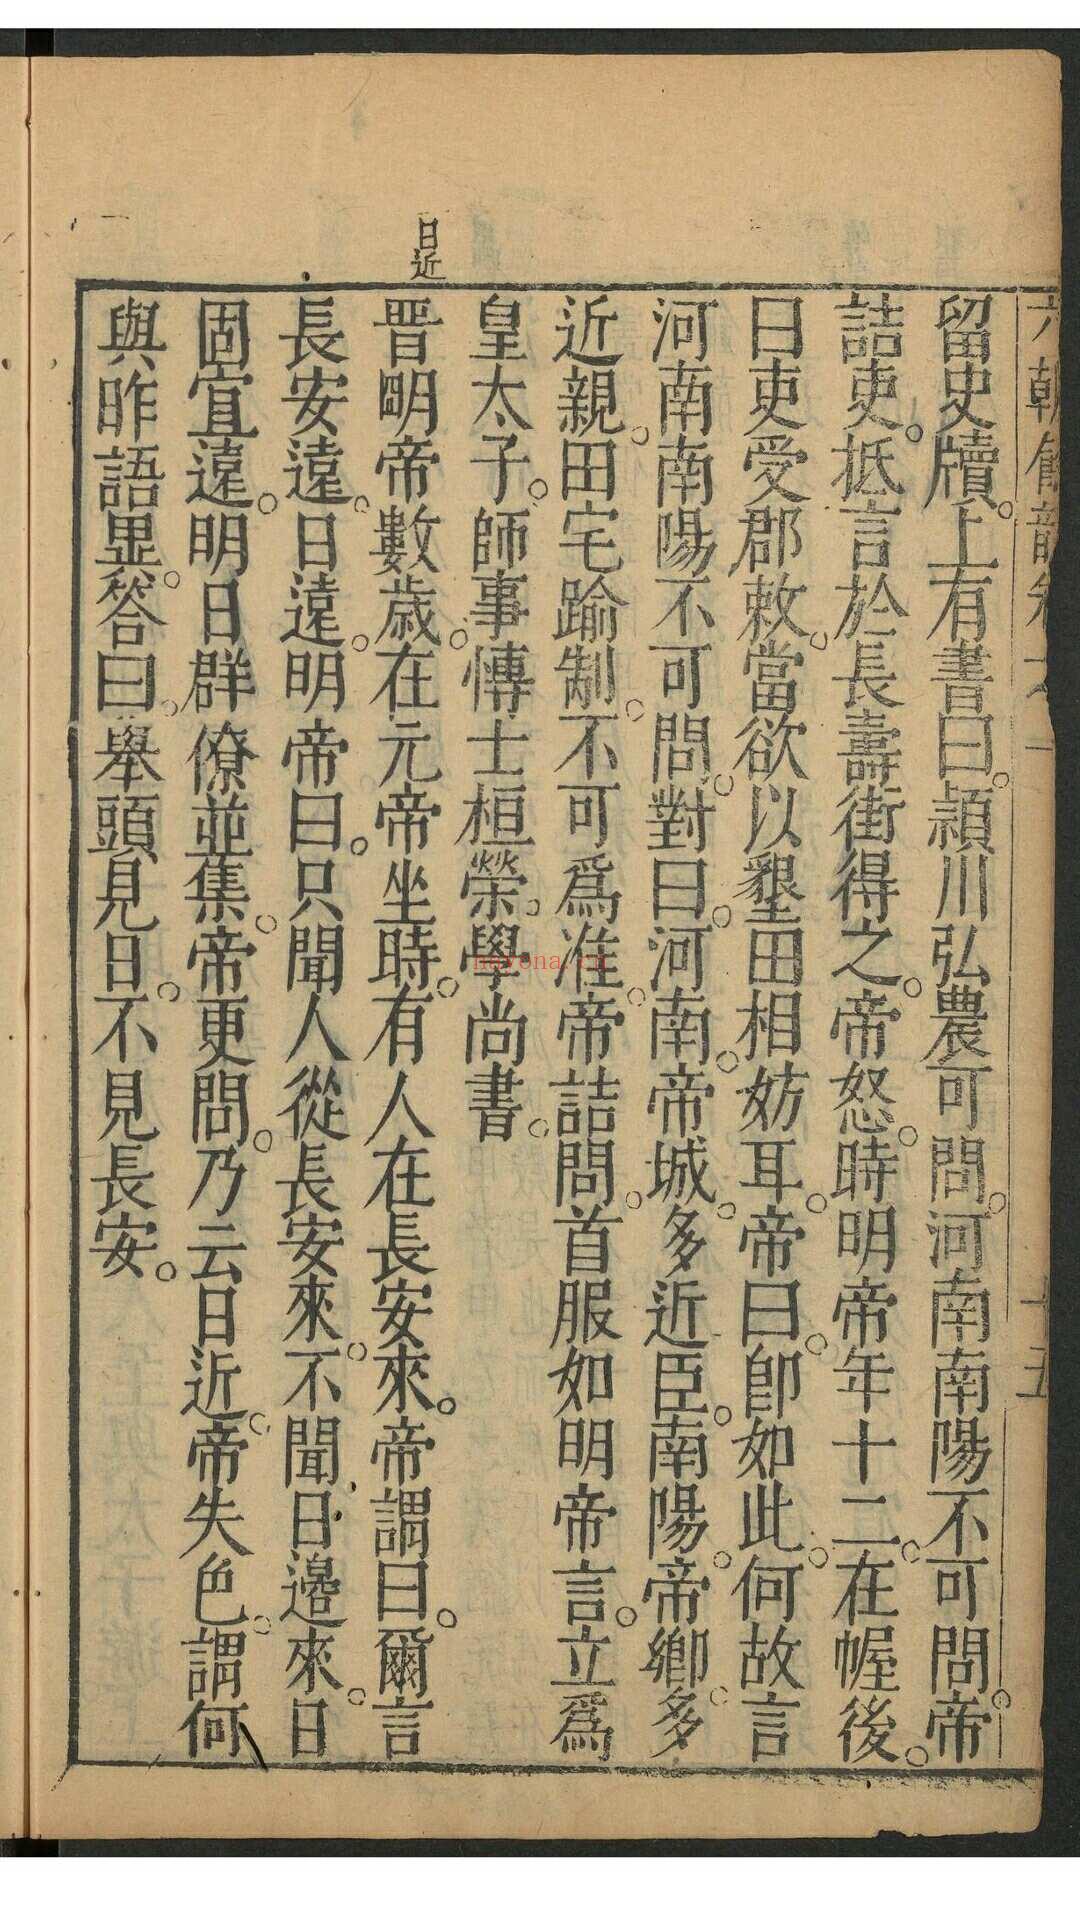 留吏牘。上有書曰。潁川弘農可問。河南南陽不可問。帝
詰吏。抵言於長壽街得之。帝怒。時明帝年十二。在幄後。
曰吏受郡敕。當欲以墾田相妨耳。帝曰。卽如此。何故言
河南南陽不可問。對曰。河南。帝城。多近臣。南陽。帝鄉。多
近親。田宅踰制。不可爲准。帝詰問。首服如明帝言。立爲
皇太子。師事博士桓榮。學尚書。
日近
晉明帝數歲。在元帝坐時。有人在長安來。帝謂曰。爾言
長安遠。日遠。明帝曰。只聞人從長安來。不聞日邊來。日
固宜遠。明日群僚並集。帝更問。乃云日近。帝失色。謂何
與昨語異。答曰。舉頭見日。不見長安。
nayona.cn